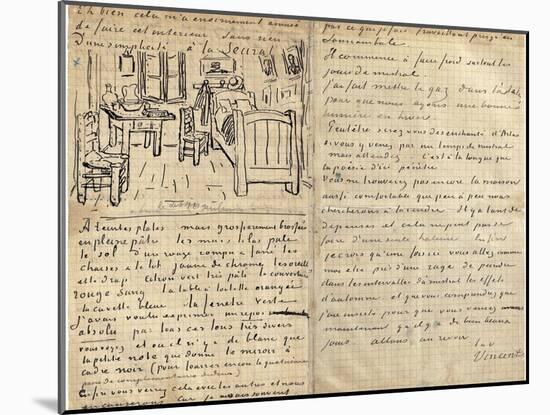 Eh bien cela m'a enormement amusé
de faire cet interieur sans rien
D'une simplicité à la Seurat
A teintes plates mais grossierement brossées
en pleine pâte les murs lilas pale
le sol d'un rouge rompu & fané les
chaises & le lit jaune de chrome les oreillers
et le drap citron vert très pâle la couverture
rouge sang la table à toilette orangée
la cuvette bleue la fenetre verte
J'avais voulu exprimer un repos
absolu par tous ces tons très divers
vous voyez et où il n'y a de blanc que
la petite note que donne le miroir à
cadre noir (pour fourrer encore la quatrième
paire de complementaires dedans)
Enfin vous verrez cela avec les autres et nous
en causerons car je ne sais souvent
pas ce que je fais travaillant presqu'en
somnambule.
Il commence à faire froid surtout les
jours de mistral
J'ai fait mettre le gaz dans
pour que nous ayons une bonne
lumière en hiver.
Peutêtre serez vous desenchanté d'Arles
si vous y venez par un temps de mistral
mais attendez.. C'est à la longue que
la poésie d'ici pénètre
Vous ne trouverez pas encore la maison
aussi comfortable que peu à peu nous
chercherons à la rendre. Il y a tant de
depenses et cela ne peut pas se
faire d'une seule haleine Enfin
je crois qu'une fois ici vous allez comme
moi être pris d'une rage de peindre
dans les intervalles du mistral les effets
d'automne et que vous comprendrez que
j'ai insisté pour que vous veniez
maintenant qu'il y a de bien beaux
jours allons au revoir
t. à v.
Vincent